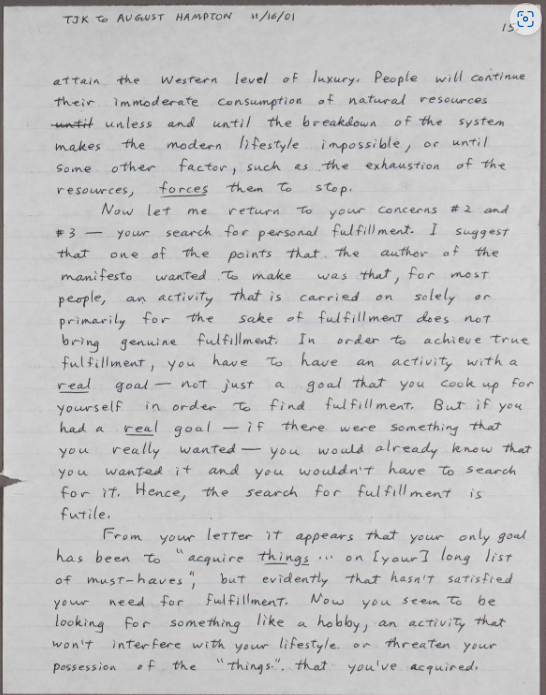 TJK to AUGUST HAMPTON 11/16/01
15
attain the Western level of luxury. People will continue
their immoderate consumption of natural resources
until unless and until the breakdown of the system
makes the modern lifestyle impossible, or until
some other factor, such as the exhaustion of the
resources, forces them to stop.
Now let me return to your concerns #2 and
#3 — your search for personal fulfillment. I suggest
that one of the points that the author of the
manifesto wanted to make was that, for most
people, an activity that is carried on solely or
primarily for the sake of fulfillment does not
bring genuine fulfillment. In order to achieve true
fulfillment, you have to have an activity with a
real goal — not just a goal that you cook up for
yourself in order to find fulfillment. But if you
had a real goal — if there were something that
you really wanted — you would already know that
you wanted it and you wouldn't have to search
for it. Hence, the search for fulfillment is
futile.
From your letter it appears that your only goal
has been to "acquire things ... on [your] long list
of must-haves", but evidently that hasn't satisfied
your need for fulfillment. Now you seem to be
looking for something like a hobby, an activity that
won't interfere with your lifestyle or threaten your
possession of the "things" that you've acquired.